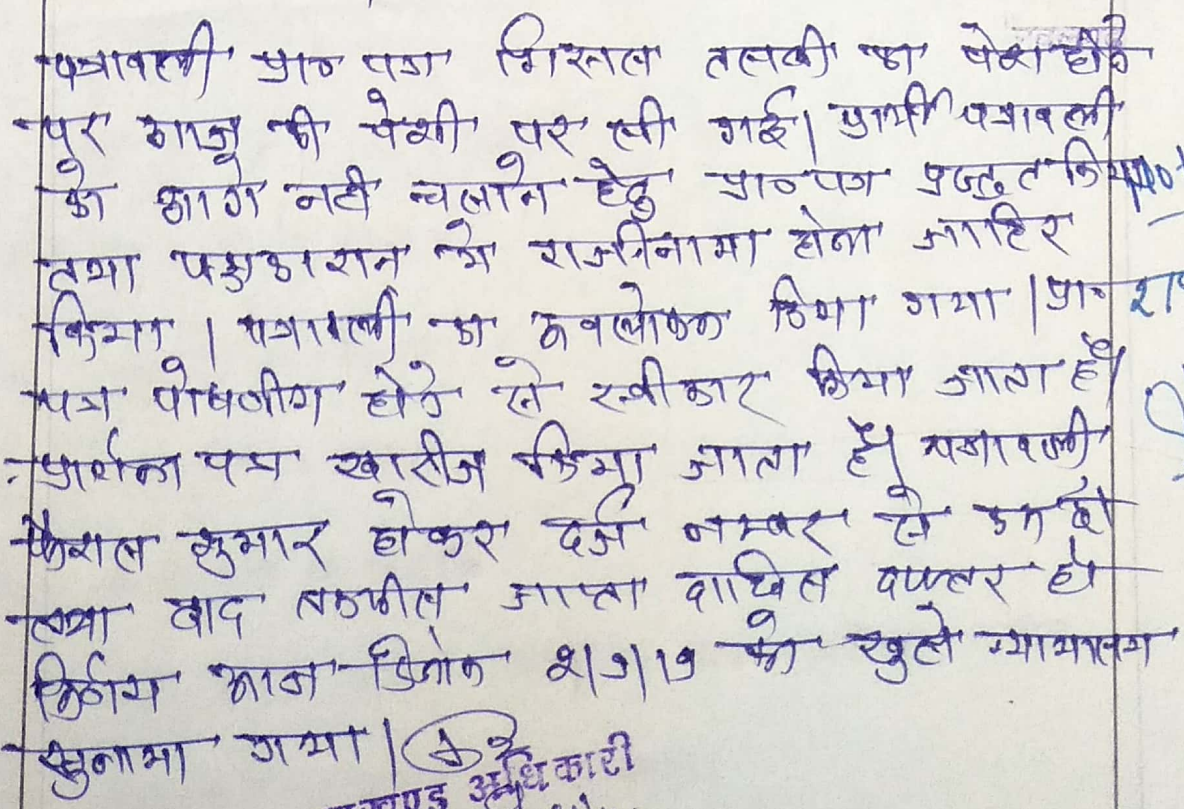 पत्रावली प्रा० पत्र मिसल तलबी का पेश होने
पर आज की पेशी पर ली गई। प्रार्थी पत्रावली
को आगे नही चलाने हेतु प्रा० पत्र प्रस्तुत किया
तथा पक्षकारान मे राजीनामा होना जाहिर
किया। पत्रावली का अवलोकन किया गया। प्रा०
पत्र पोषणीय होने से स्वीकार किया जाता है।
प्रार्थना पत्र खारीज किया जाता है। पत्रावली
फैसल शुमार होकर दर्ज नम्बर से कम हो
तथा बाद तकमील जाप्ता दाखिल दफ्तर हो।
निर्णय आज दिनांक को खुले न्यायालय
सुनाया गया।
अधिकारी